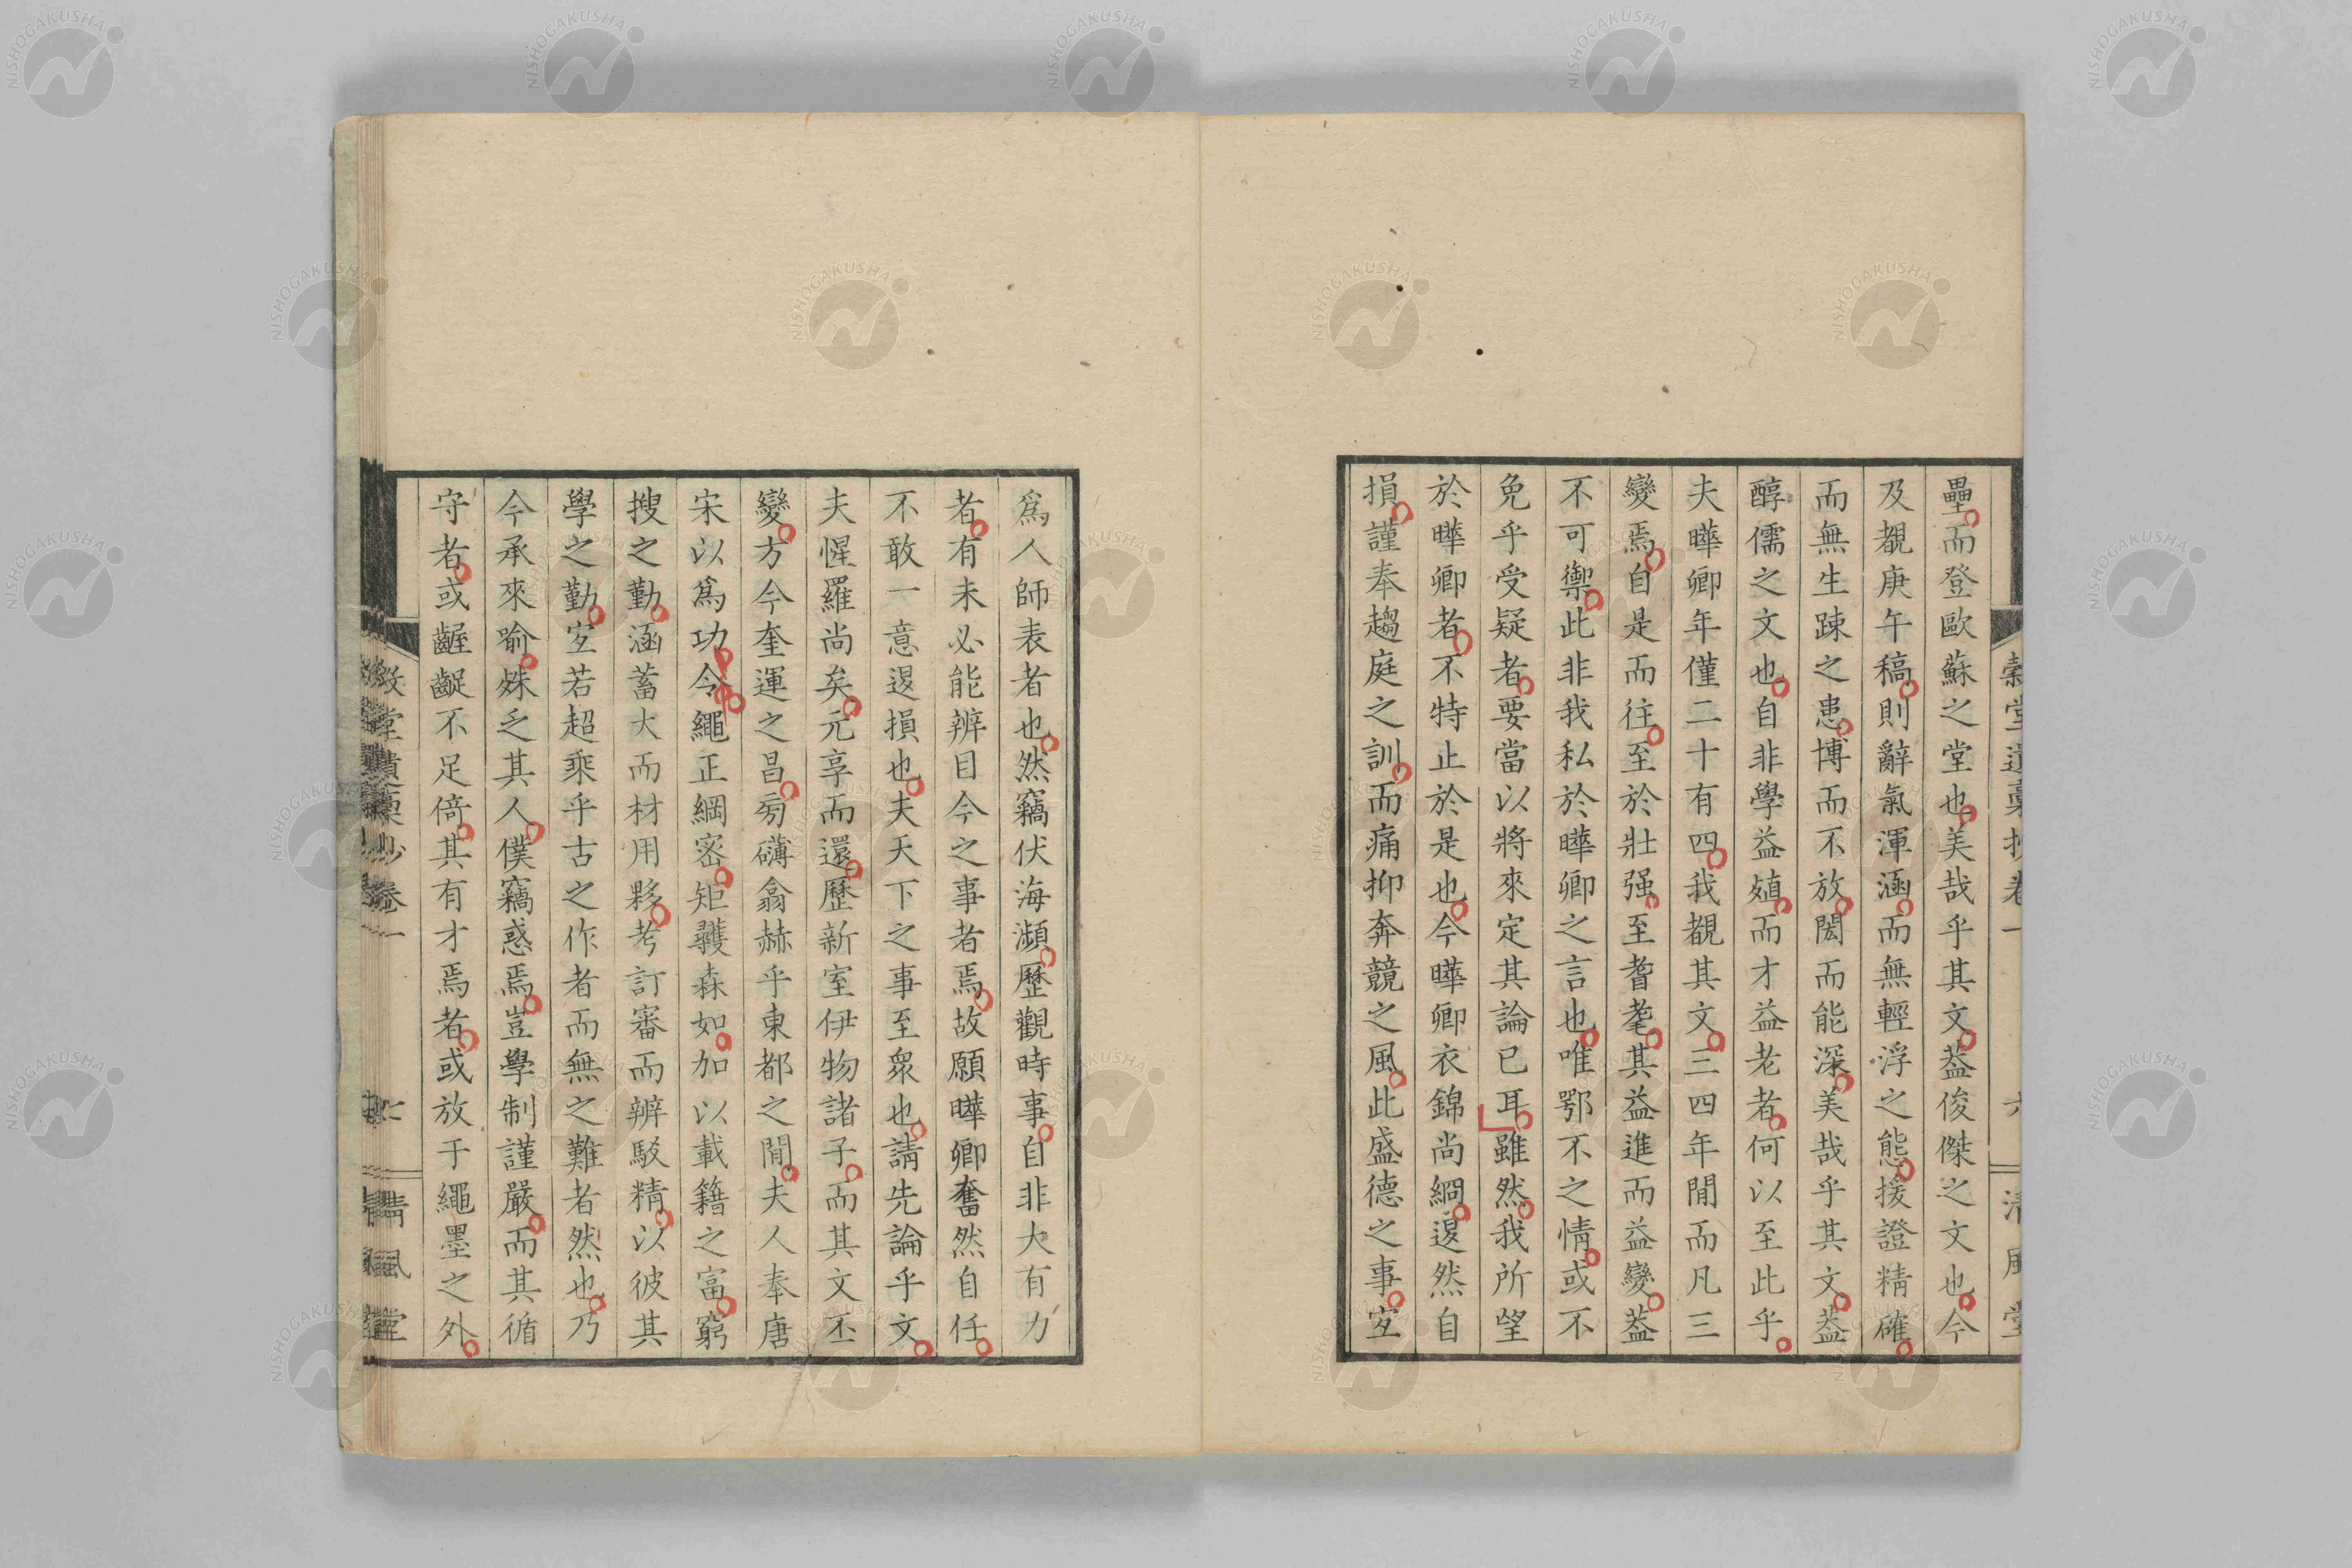 壘而登歐蘇之堂也美哉乎其文葢俊傑之文也今
及覩庚午稿則辭氣渾涵而無輕浮之態援證精確
而無生踈之患博而不放閎而能深美哉乎其文葢
醇儒之文也自非學益殖而才益老者何以至此乎
夫曄卿年僅二十有四我覩其文三四年間而凡三
變焉自是而往至於壯强至耆耄其益進而益變葢
不可禦此非我私於曄卿之言也唯鄂不之情或不
免乎受疑者要當以將來定其論已耳雖然我所望
於曄卿者不特止於是也今曄卿衣錦尚絅退然自
損謹奉趨庭之訓而痛抑奔競之風此盛德之事宜
爲人師表者也然竊伏海瀕歷觀時事自非大有力
者有未必能辨目今之事者焉故願曄卿奮然自任
不敢一意退損也夫天下之事至衆也請先論乎文
夫惺羅尚矣元享而還歷新室伊物諸子而其文丕
變方今奎運之昌旁礴翕赫乎東都之間夫人奉唐
宋以爲功令繩正綱密矩彠森如加以載籍之富窮
搜之勤涵蓄大而材用夥考訂審而辨駁精以彼其
學之勤宜若超乘乎古之作者而無之難者然也乃
今承來喻姝乏其人僕竊惑焉豈學制謹嚴而其循
守者或齷齪不足倍其有才焉者或放于繩墨之外
清風堂
NISHOGAKUSHA